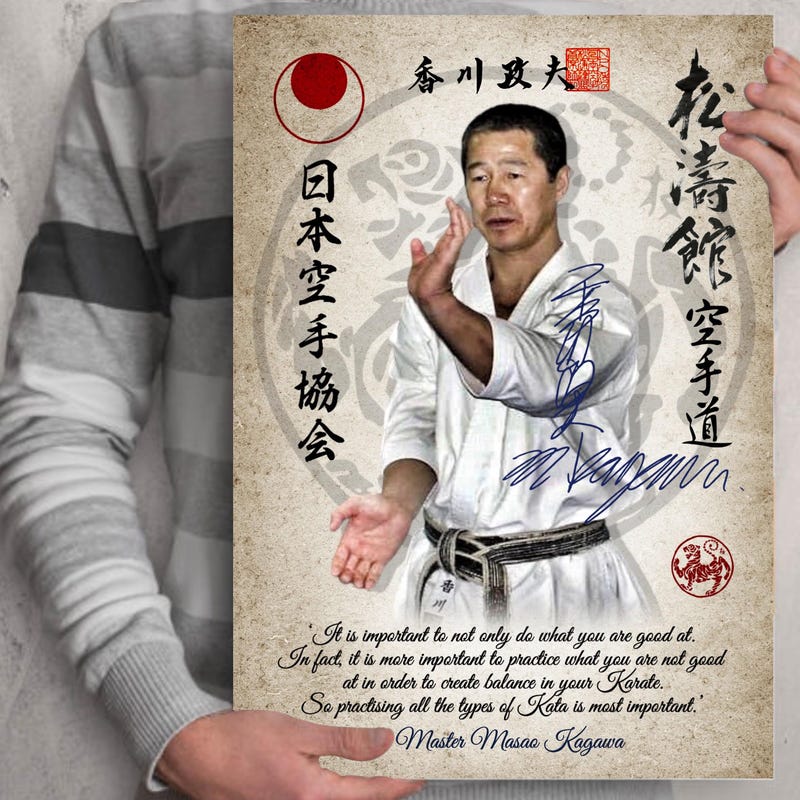 香川政夫
松濤館空手道
日本空手協会
香川
'It is important to not only do what you are good at.
In fact, it is more important to practice what you are not good
at in order to create balance in your Karate.
So practising all the types of Kata is most important.'
Master Masao Kagawa